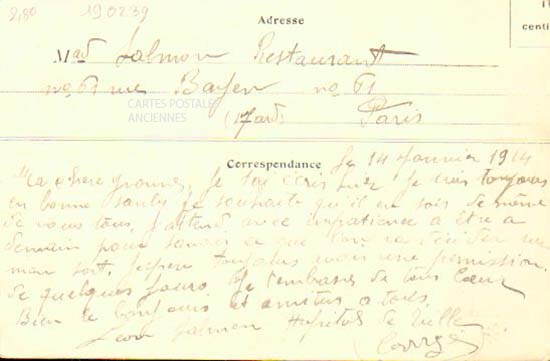 2,80 190239
Adresse
centi
Mad Salmon Restaurant
no 61 rue Bayen no 61
CARTES POSTALES
ANCIENNES
(17 ard) Paris
Correspondance
14 Janvier 1914
Ma chere yvonne, je t'ai écris hier je suis toujours
en bonne santé je souhaite qu'il en sois de même
de vous tous, j'attend avec impatience a être a
demain pour savoir ce que l'on va décider de
mon sort, j'espere toujours avoir une permission
de quelques jours. Je t'embrasse de tous Coeur
Bien le bonjours et amities a tous.
Leon Salmon Hopital de Tulle
Corrèze